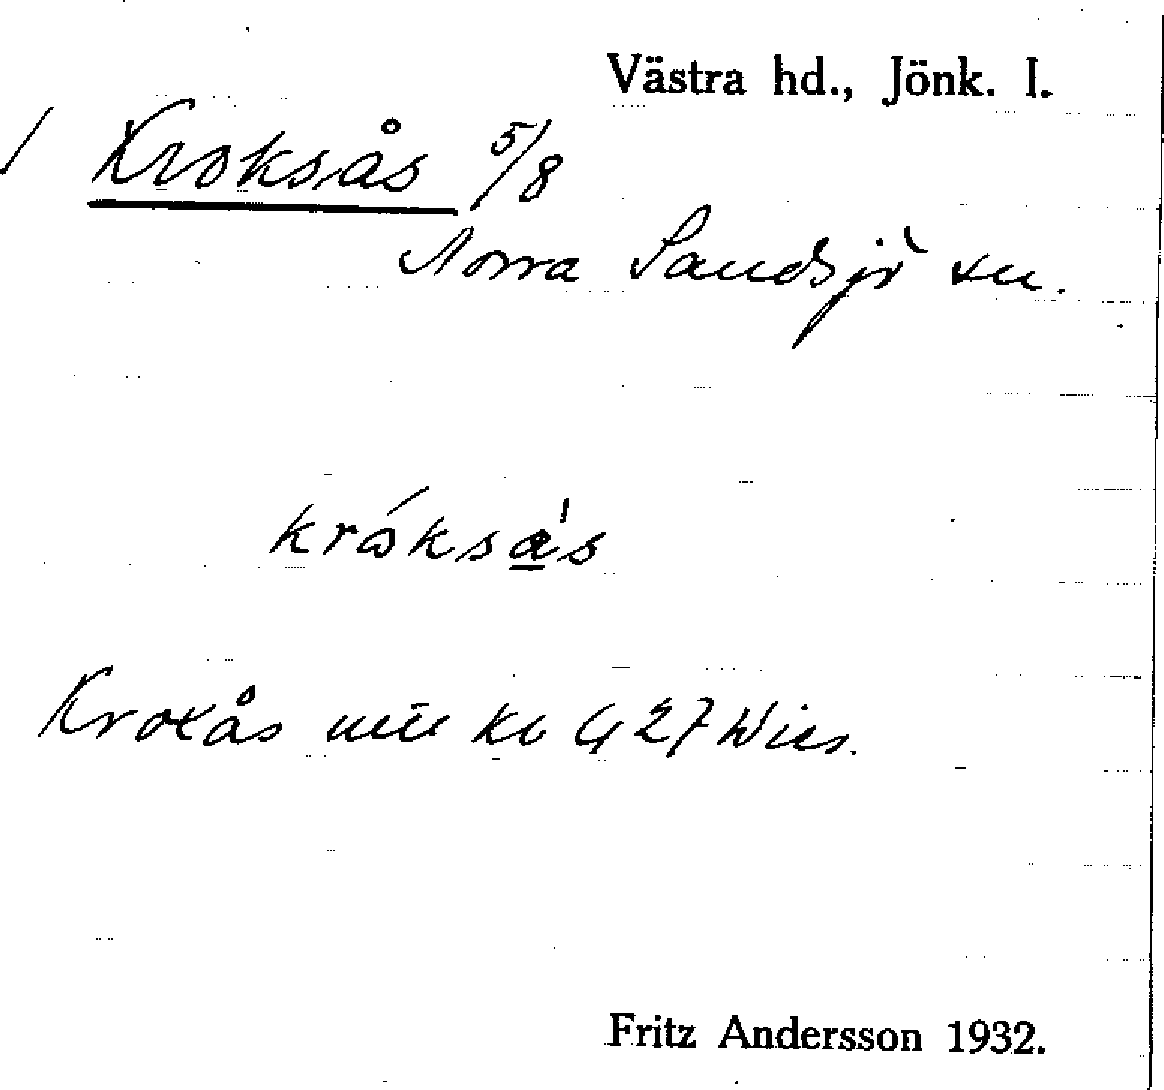 Västra hd., Jönk. l.
/ Kroksås 5/8
Norra Sandsjö sn.
króksa̲'s
Krokås
427 Wies.
Fritz Andersson 1932.